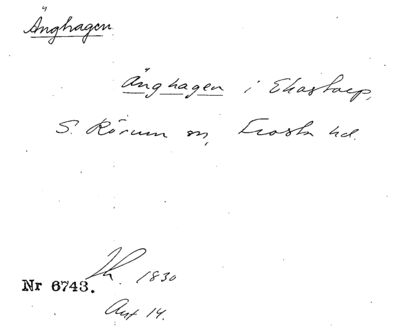 Änghagen
Änghagen i Ekastorp,
S. Rörum sn, Frosta hd.
Nr 6743. 1830
14.